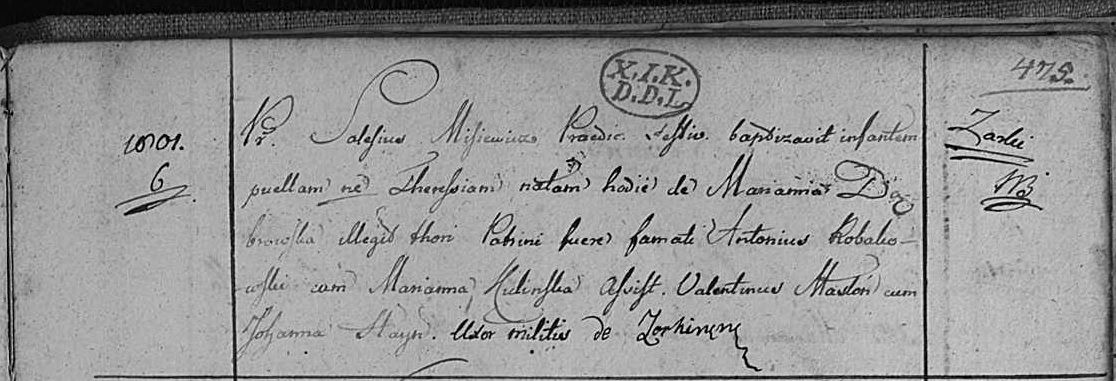 475.
X.I.K.
D.D.L.
1801.
6
Pr. Salesius Misiewicz Praedic. festiv. baptizavit infantem
puellam ne Theressiam natam hodie de Marianna Dą
browska illegit thori Patrini fuere famati Antonius Robako-
wski cum Marianna Assist. Valentinus cum
Johanna Uxor militis de
Zarki